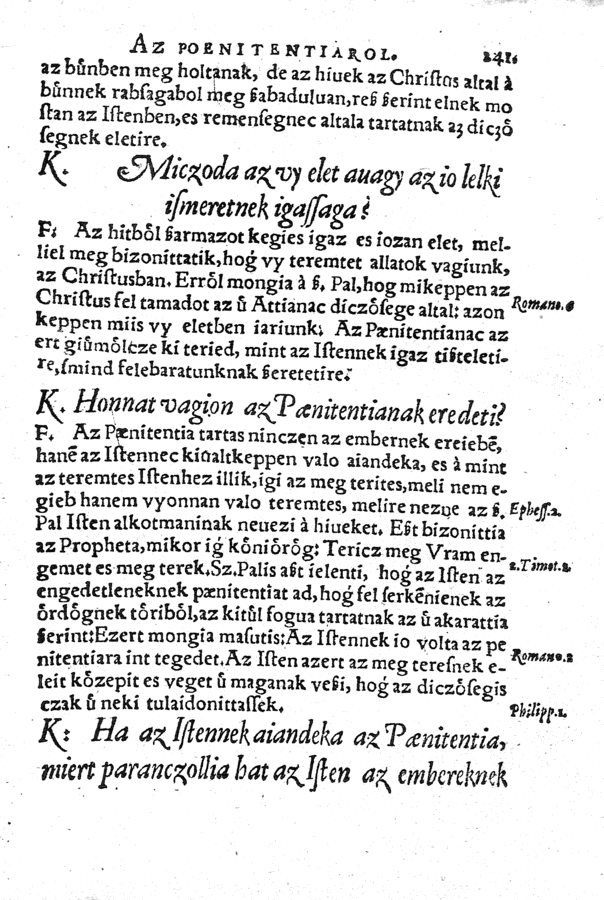 AZ POENITENTIAROL. 241.
az bűnben meg holtanak, de az hiuek az Chriſtus altal à
bűnnek rabſagabol meg ßabaduluan, reß ßerint elnek mo
ſtan az Iſtenben, es remenſegnec altala tartatnak az diczŏ
ſegnek eletire.
K. Miczoda az vy elet auagy az io lelki
iſmeretnek igaſſaga?
F: Az hitbŏl ßarmazot kegies igaz es iozan elet, mel-
liel meg bizonittatik, hoǵ vy teremtet allatok vagiunk,
az Chriſtusban. Errŏl mongia à ß. Pal, hog mikeppen az
Chriſtus fel tamadot az ů Attianac diczŏſege altal: azon Romano. 6
keppen miis vy eletben iariunk: Az Pænitentianac az
ert giůmŏlcze ki teried, mint az Iſtennek igaz tißteleti-
re, ſmind felebaratunknak ßeretetire:
K. Honnat vagion az Pænitentianak eredeti?
F. Az Pænitentia tartas ninczen az embernek ereiebē,
hanē az Iſtennec kiualtkeppen valo aiandeka, es à mint
az teremtes Iſtenhez illik, igi az meg terites, meli nem e-
gieb hanem vyonnan valo teremtes, melire nezue az ß. Epheſſ. 2.
Pal Iſten alkotmaninak neuezi à hiueket. Eßt bizonittia
az Propheta, mikor iǵ kŏniŏrŏg: Tericz meg Vram en-
gemet es meg terek. Sz. Palis aßt ielenti, hoǵ az Iſten az 2. Timot. 2.
engedetleneknek pænitentiat ad, hoǵ fel ſerkēnienek az
ŏrdŏgnek tŏribŏl, az kitůl fogua tartatnak az ů akarattia
ßerint: Ezert mongia maſutis: Az Iſtennek io volta az pe
nitentiara int tegedet. Az Iſten azert az meg tereſnek e- Romano. 2
leit kŏzepit es veget ů maganak veßi, hoǵ az diczŏſegis
czak ů neki tulaidonittaſſek. Philipp. 2.
K: Ha az Iſtennek aiandeka az Pænitentia,
miert paranczollia hat az Iſten az embereknek